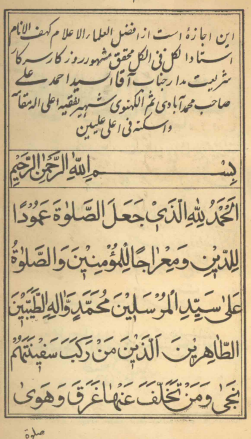 این اجازة است از افضل العلماء الاعلام کهف الانام
استاد الکل فی الکل محقق مشهور روزکار سرکار
شریعت مدار جناب آقا السید احمد علے
صاحب محمدآبادی ثم الکهنوی شهیر بفقیه اعلی الله مقامه
واسکنه فی اعلی علیین
بِسْمِ اللهِ الرَّحْمٰنِ الرَّحِيْمِ
اَلْحَمْدُ لِلّٰهِ الَّذِيْ جَعَلَ الصَّلٰوةَ عَمُوْدًا
لِلدِّيْنِ وَمِعْرَاجًا لِلْمُؤْمِنِيْنَ وَالصَّلٰوةُ
عَلٰى سَيِّدِ الْمُرْسَلِيْنَ مُحَمَّدٍ وَّاٰلِهِ الطَّيِّبِيْنَ
الطَّاهِرِيْنَ الَّذِيْنَ مَنْ رَكِبَ سَفِيْنَتَهُمْ
نَجٰى وَمَنْ تَخَلَّفَ عَنْهَا غَرَقَ وَهَوٰى
صلوة